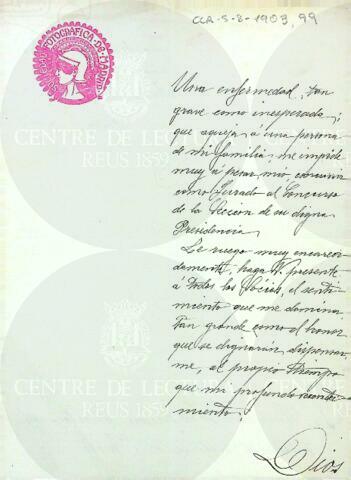 CCR-S-8-1903, 99
FOTOGRAFICA DE MADRID
Una enfermedad, tan
grave como inesperada,
que aqueja á una persona
de mi familia, me impide
muy á pesar mío, concurrir
como Jurado al Concurso
de la Sección de su digna
Presidencia.
Le ruego muy encareci-
damente, haga V. presente
á todos los Socios, el senti-
miento que me domina,
tan grande como el honor
que se dignarán dispensar-
me, al propio tiempo
que mi profundo reconoci-
miento.
Dios
CENTRE DE LE
REUS 1859
CENTRE DE LE
REUS 1859